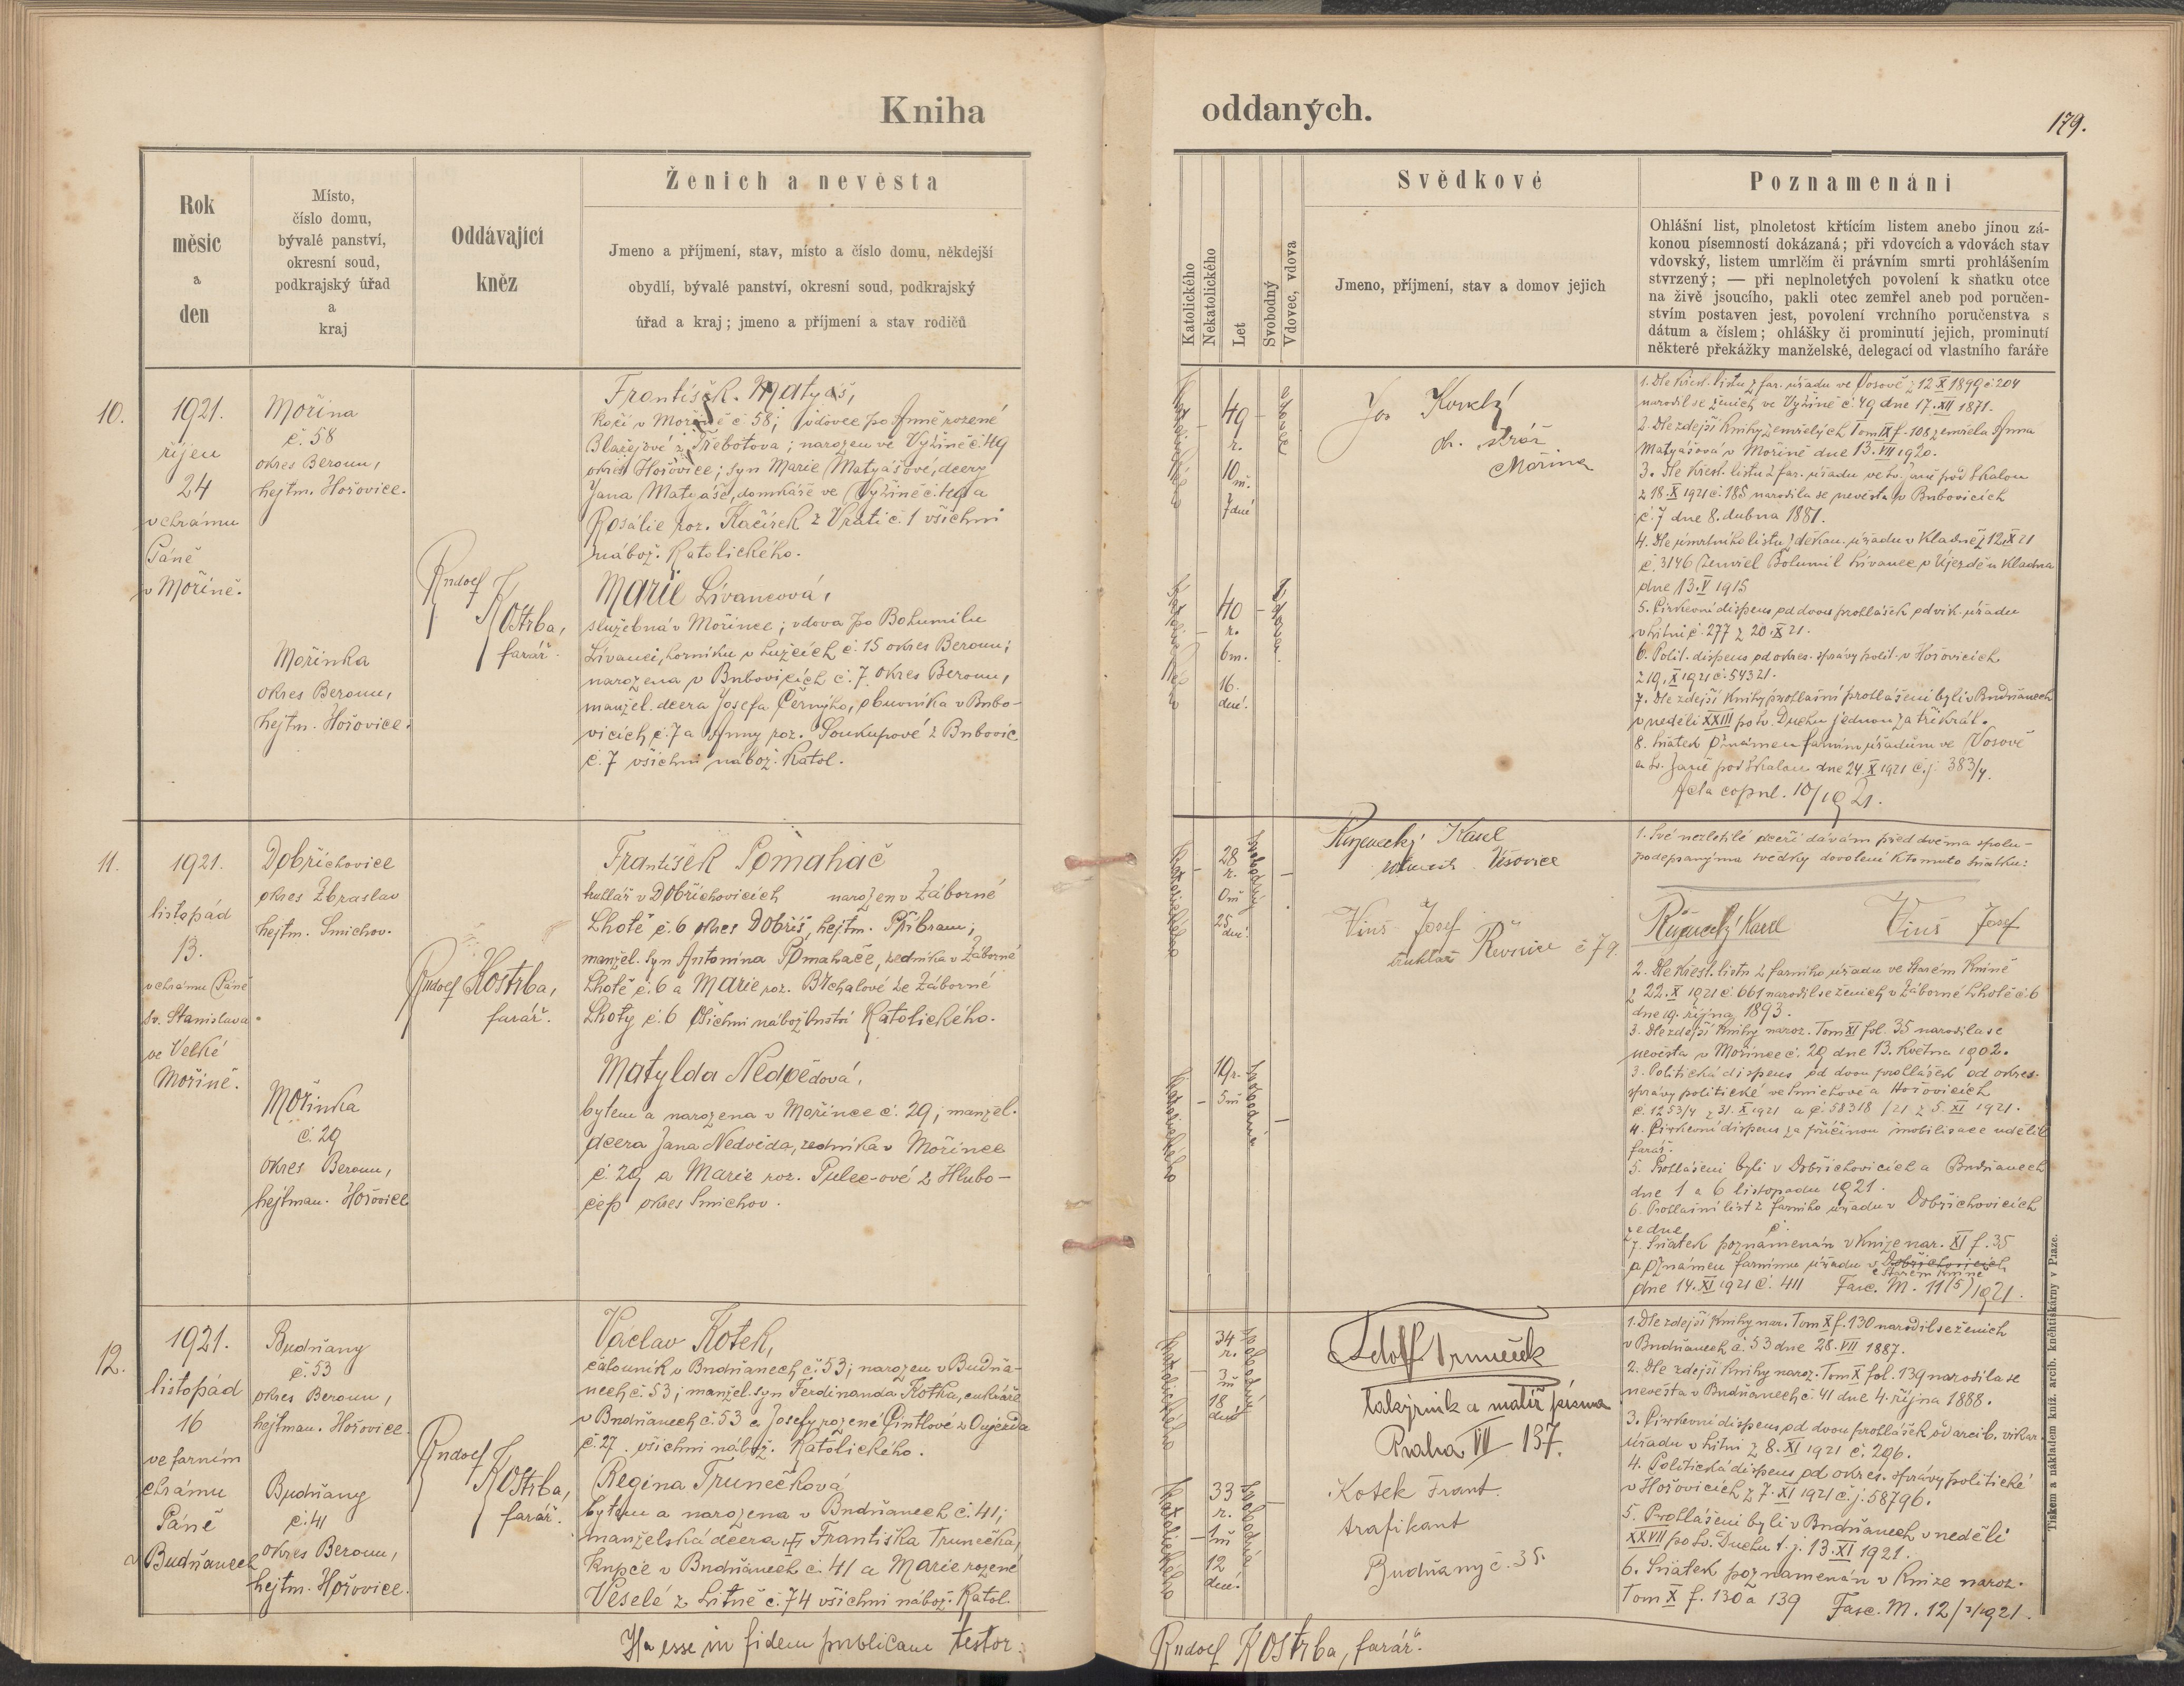 Kniha oddaných.
179.
Rok měsíc a den
Místo, číslo domu, bývalé panství, okresní soud, podkrajský úřad a kraj
Oddávající kněz
Ženich a nevěsta
Jmeno a příjmení, stav, místo a číslo domu, někdejší
obydlí, bývalé panství, okresní soud, podkrajský
úřad a kraj; jmeno a příjmení a stav rodičů
Katolického
Nekatolického
Let
Svobodný
Vdovec, vdova
Svědkové
Jmeno, příjmení, stav a domov jejich
Poznamenání
Ohlášní list, plnoletost křtícím listem anebo jinou zá-
konou písemností dokázaná; při vdovcích a vdovách stav
vdovský, listem umrlčím či právním smrti prohlášením
stvrzený; — při neplnoletých povolení k sňatku otce
na živě jsoucího, pakli otec zemřel aneb pod poručen-
stvím postaven jest, povolení vrchního poručenstva s
dátum a číslem; ohlášky či prominutí jejich, prominutí
některé překážky manželské, delegací od vlastního faráře
10.
1921.
říjen
24
v chrámu
Páně
v Mořině.
Mořina
č. 58
okres Beroun,
hejtm. Hořovice.
Mořinka
okres Beroun,
hejtm. Hořovice.
Rudolf
Kostrba,
farář.
František Matyáš,
kočí v Mořině č 58; vdovec po Anně rozené
Blažejové z Třebotova; narozen ve Vyžině č. 49
okres Hořovice; syn Marie Matyášové, dcery
Jana Matyáše, domkáře ve Vyžině č. 49 a
Rosálie roz. Kačírek z Vrati č. 1 všichni
nábož. katolického.
Marie Lívancová,
služebná v Mořince; vdova po Bohumilu
Lívanci, horníku v Lužcích č. 15 okres Beroun;
narozena v Bubovicích č. 7. okres Beroun,
manžel. dcera Josefa Černýho, obuvníka v Bubo-
vicích č. 7 a Anny roz. Soukupové z Bubovic
č. 7 všichni nábož. katol.
katolického
49
r.
10 m.
7 dné
vdovec
katolického
40
r.
6 m.
16.
dné.
vdova
Jos
Mořina
1. Dle křest. listu z far. úřadu ve Vosově z 12 X 1899 č. 204
narodil se ženich ve Vyžině č. 49 dne 17. XII 1871.
2. Dle zdejší knihy zemřelých Tom IX f. 108 zemřela Anna
Matyášová v Mořině dne 13. VII 1920.
3. Dle křest. listu z far. úřadu ve Sv. Janě pod Skalou
z 18. X 1921 č. 185 narodila se nevěsta v Bubovicích
č. 7 dne 8. dubna 1881.
4. Dle úmrtního listu z děkan. úřadu v Kladně z 12. X 21
č. 3146 zemřel Bohumil Lívanec v Újezdě u Kladna
dne 13. V 1915
5. Církevní dispens od dvou prohlášek od vik. úřadu
v Litni č. 277 z 20. X 21.
6. Polit. dispens od okres. správy polit. v Hořovicích
z 19. X 1921 č. 54321.
7. Dle zdejší knihy prohlašní prohlášeni byli v Budňanech
v neděli XXIII po Sv. Duchu jednou za třikrát.
8. Sňatek oznámen farním úřadům ve Vosově
a Sv. Janě pod Skalou dne 24. X 1921 č. j. 383/4.
Acta copul. 10/1921.
11.
1921.
listopád
13.
v chrámu Páně
sv. Stanislava
ve Velké
Mořině.
Dobřichovice
okres Zbraslav
hejtm. Smíchov.
Mořinka
č. 29
okres Beroun,
hejtman. Hořovice
Rudolf Kostrba,
farář.
František Pomahač
truhlář v Dobřichovicích narozen v Záborné
Lhotě č. 6 okres Dobříš, hejtm. Příbram;
manžel. syn Antonína Pomahače, zedníka v Záborné
Lhotě č. 6 a Marie roz. Bychalové ze Záborné
Lhoty č. 6 všichni náboženství katolického.
Matylda Nedvědová,
bytem a narozena v Mořince č. 29; manžel.
dcera Jana Nedvěda, zedníka v Mořince
č. 29 a Marie roz. Pulec-ové z Hlubo-
čep okres Smíchov.
katolického
28
r.
0 m
25
dné.
svobodný
katolického
19 r.
5 m
svobodná
Karel
Vinš Josef
truhlář Řevnice č 79.
1. Své nezletilé dceři dávám před dvěma spolu-
podepsanýma svědky dovolení k tomuto sňatku:
Karel Vinš Josef
2. Dle křest. listu z farního úřadu ve Starém Kníně
z 22. X 1921 č. 661 narodil se ženich v Záborné Lhotě č. 6
dne 19. října 1893.
3. Dle zdejší knihy naroz. Tom XI fol. 35 narodila se
nevěsta v Mořince č. 29 dne 13. května 1902.
3. Politická dispens od dvou prohlášek od okres.
správy politické ve Smíchově a Hořovicích
č. 1253/4 z 31. X 1921 a č. 58318/21 z 5. XI 1921.
4. Církevní dispens za příčinou mobilisace udělil
farář.
5. Prohlášeni byli v Dobřichovicích a Budňanech
dne 1 a 6 listopadu 1921.
6. Prohlašní list z farního úřadu v Dobřichovicích
ze dne č.
7. Sňatek poznamenán v knize nar. XI f. 35
a oznámen farnímu úřadu v Dobřichovicích
Starém Kníně
dne 14. XI 1921 č. 411 Fasc. M. 11(5)1921.
12.
1921.
listopád
16
ve farním
chrámu
Páně
v Budňanech
Budňany
č. 53
okres Beroun,
hejtman. Hořovice.
Budňany
č. 41
okres Beroun,
hejtm. Hořovice.
Rudolf
Kostrba,
farář.
Václav Kotek,
čalouník v Budňanech č. 53; narozen v Budňa-
nech č. 53; manžel. syn Ferdinanda Kotka, cukráře
v Budňanech č. 53 a Josefy rozené Cintlové z Oujezda
č. 27. všichni nábož. katolického.
Regina Trunečková
bytem a narozena v Budňanech č. 41;
manželská dcera Františka Trunečka,
kupce v Budňanech č. 41 a Marie rozené
Veselé z Litně č. 74 všichni nábož. katol.
katolického
34
r.
3 m
18
dné
svobodný
katolického
33
r.
1 m
12
dné.
svobodná
Adolf Truneček
lakýrník a malíř písma
Praha VII 137.
Kotek Frant.
trafikant
Budňany č. 35.
1. Dle zdejší knihy nar. Tom X f. 130 narodil se ženich
v Budňanech č. 53 dne 28. VII 1887.
2. Dle zdejší knihy naroz. Tom X fol. 139 narodila se
nevěsta v Budňanech č. 41 dne 4. října 1888.
3. Církevní dispens od dvou prohlášek od arcib. vikar.
úřadu v Litni z 8. XI 1921 č. 296.
4. Politická dispens od okres. správy politické
v Hořovicích z 7. XI 1921 č. j. 58796.
5. Prohlášeni byli v Budňanech v neděli
XXVII po Sv. Duchu t. j. 13. XI 1921.
6. Sňatek poznamenán v knize naroz.
Tom X f. 130 a 139 Fasc. M. 12/3/1921.
Ita esse in fidem publicam testor.
Rudolf Kostrba, farář.
Tiskem a nákladem kníž. arcib. knihtiskárny v Praze.